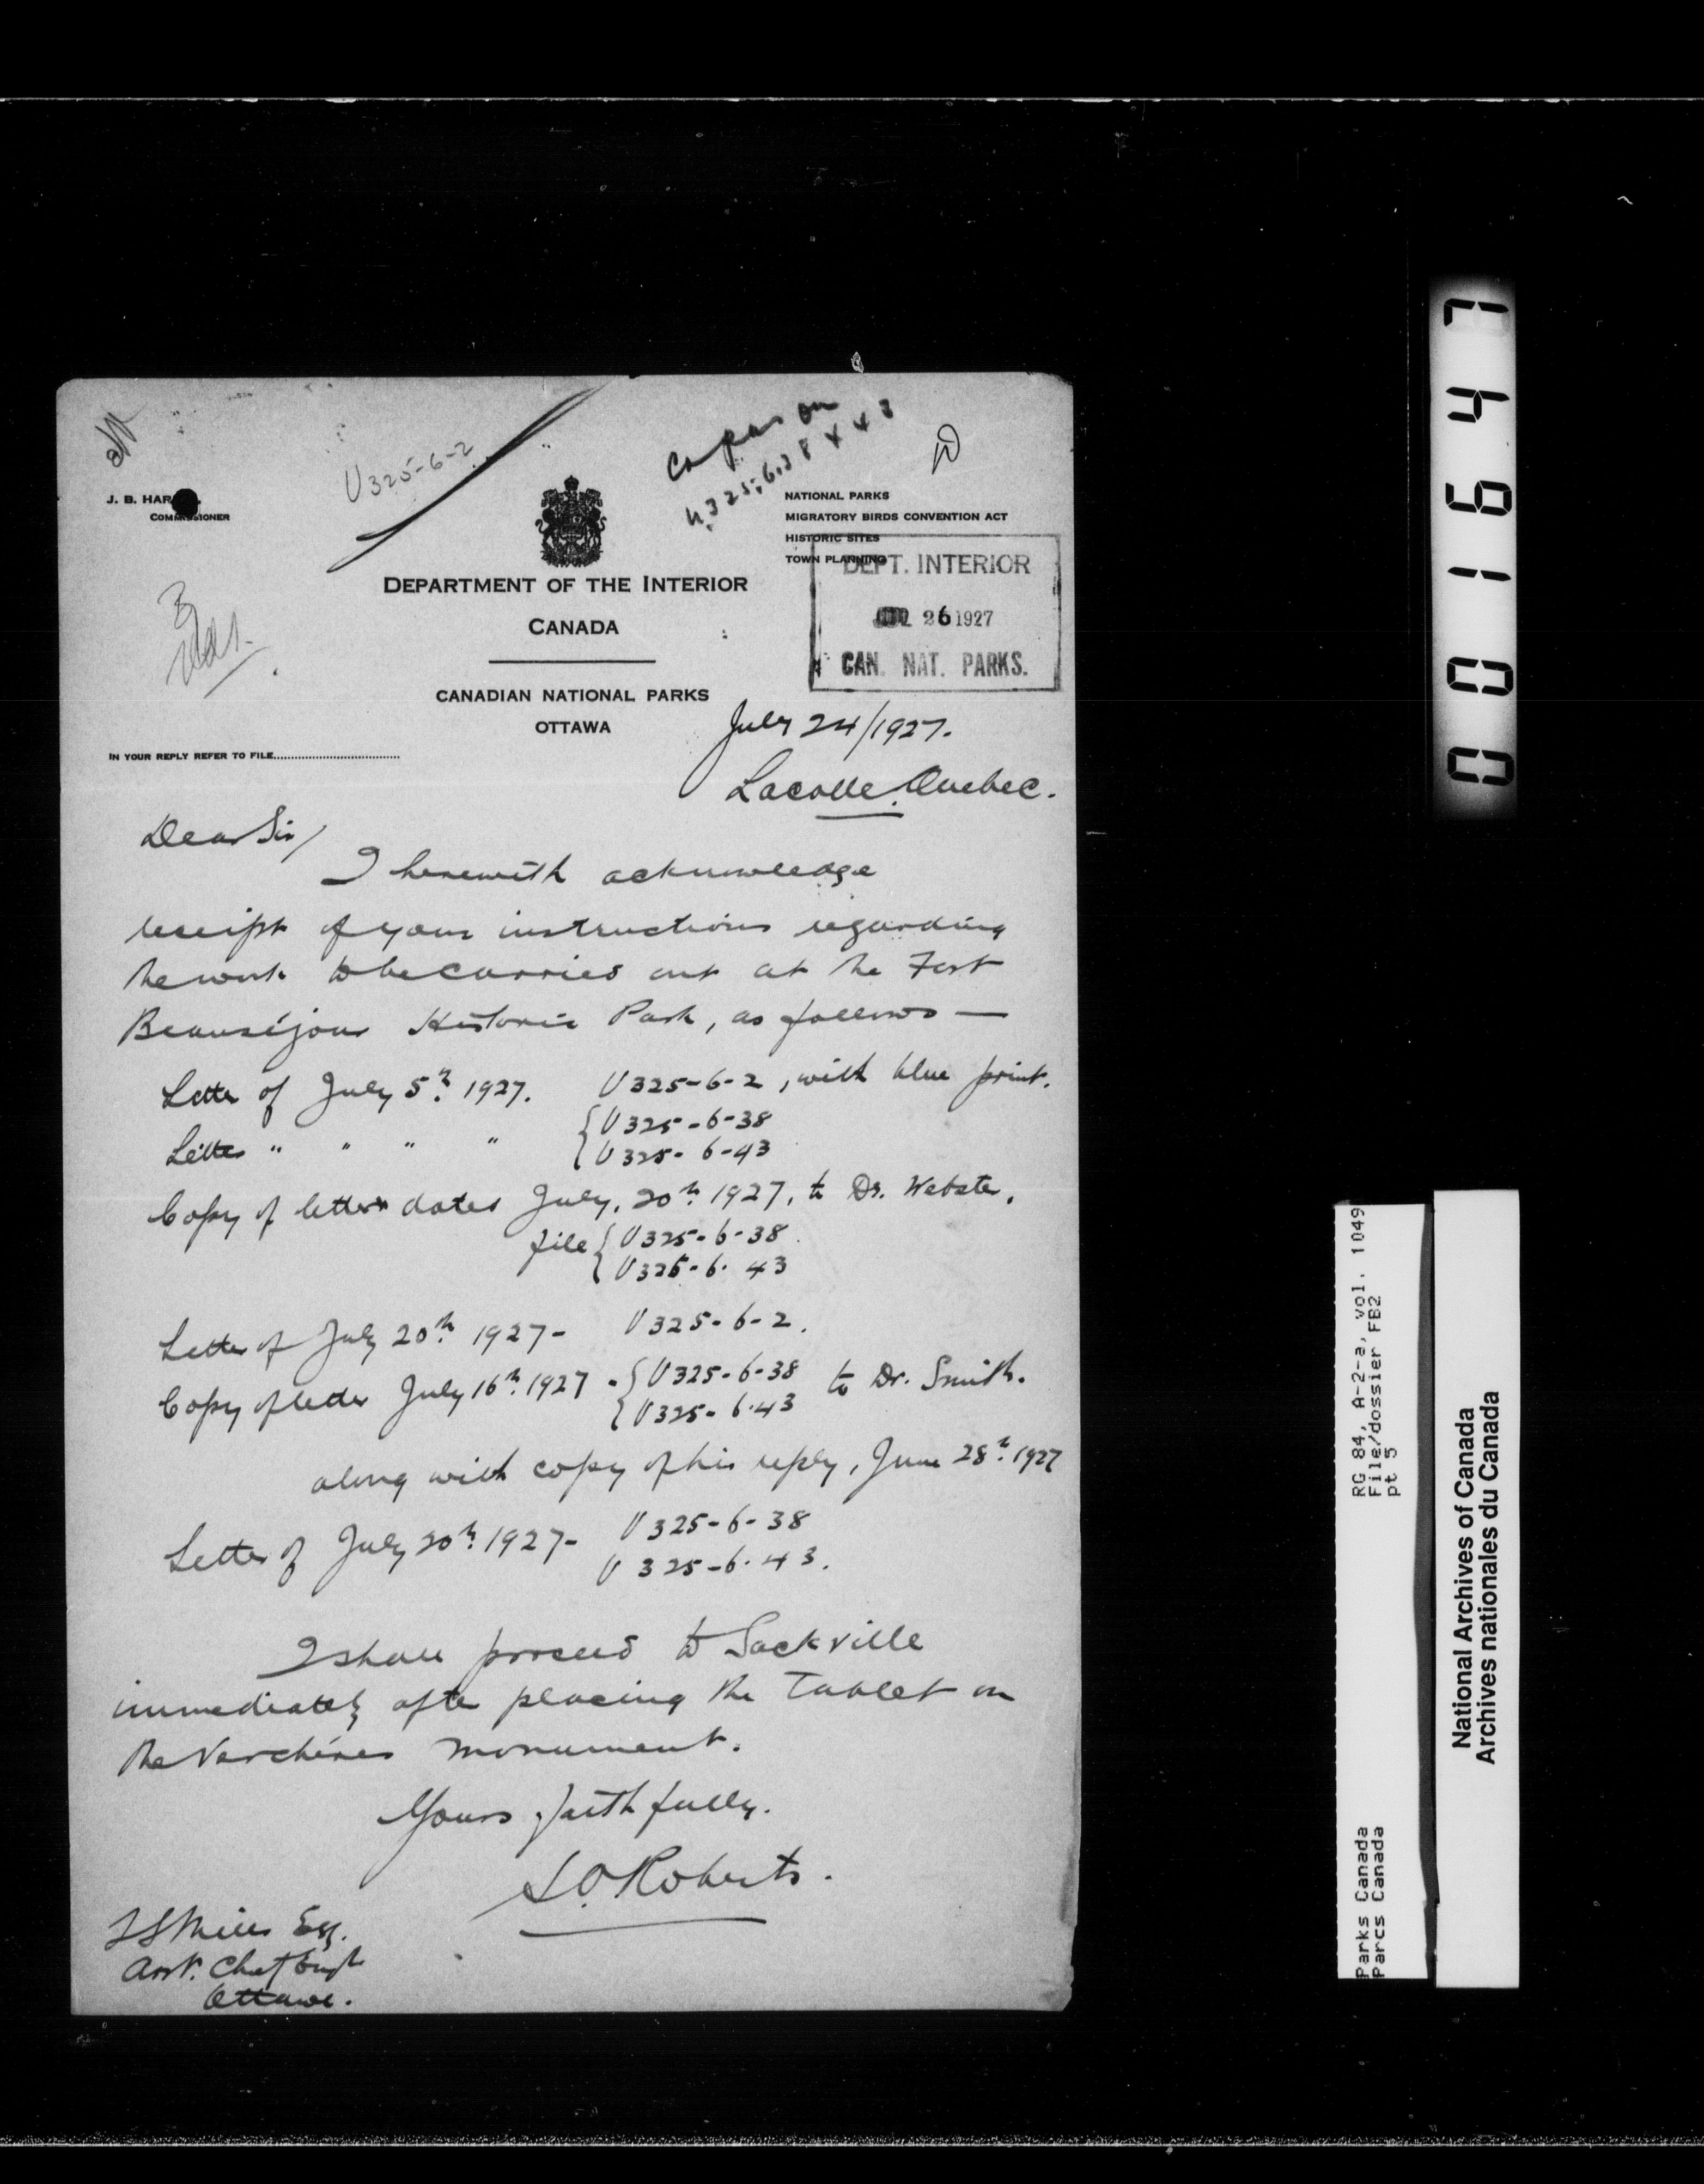 U325-6-2
Copies on
U.325-6-38 & 43
J. B. HAR
COMMISSIONER
NATIONAL PARKS
MIGRATORY BIRDS CONVENTION ACT
HISTORIC SITES
TOWN PLANNING
DEPT. INTERIOR
JUL 26 1927
CAN. NAT. PARKS.
DEPARTMENT OF THE INTERIOR
CANADA
CANADIAN NATIONAL PARKS
OTTAWA
IN YOUR REPLY REFER TO FILE
July 24/1927.
Lacolle, Quebec.
Dear Sir/
I herewith acknowledge
receipt of your instructions regarding
the work to be carried out at the Fort
Beauséjour Historic Park, as follows —
Letter of July 5th 1927. U325-6-2, with blue print.
Letter " " " " { U325-6-38
U325-6-43
Copy of letter dated July, 20th 1927, to Dr. Webster,
file { U325-6-38
U325-6-43
Letter of July 20th 1927- U325-6-2.
Copy of letter July 16th 1927 - { U325-6-38 to Dr. Smith.
U325-6-43
along with copy of his reply, June 28th 1927
Letter of July 20th 1927- U325-6-38
U325-6-43.
I shall proceed to Sackville
immediately after placing the Tablet on
the Verchères monument.
Yours faithfully.
L.O. Roberts.
T S Mills Esq.
Asst. Chief Eng'r
Ottawa.
001647
RG 84, A-2-a, vol. 1049
File/dossier FB2
pt 5
Parks Canada
Parcs Canada
National Archives of Canada
Archives nationales du Canada